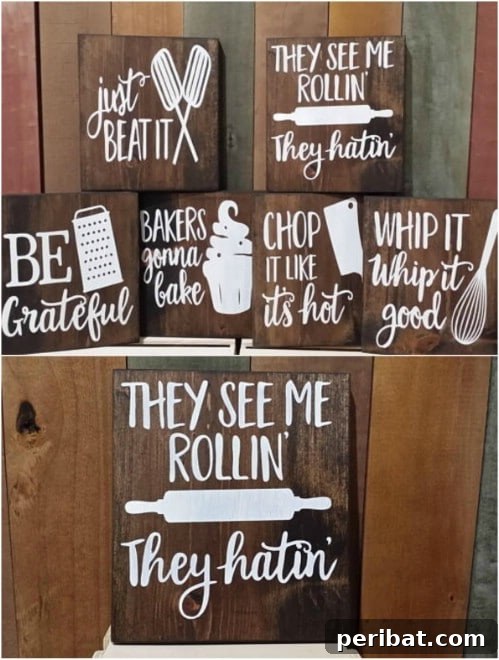 just
BEAT IT
THEY SEE ME
ROLLIN'
They hatin'
BE
Grateful
BAKERS
gonna
bake
CHOP
IT LIKE
it's hot
WHIP IT
Whip it
good
THEY SEE ME
ROLLIN'
They hatin'
peribat.com